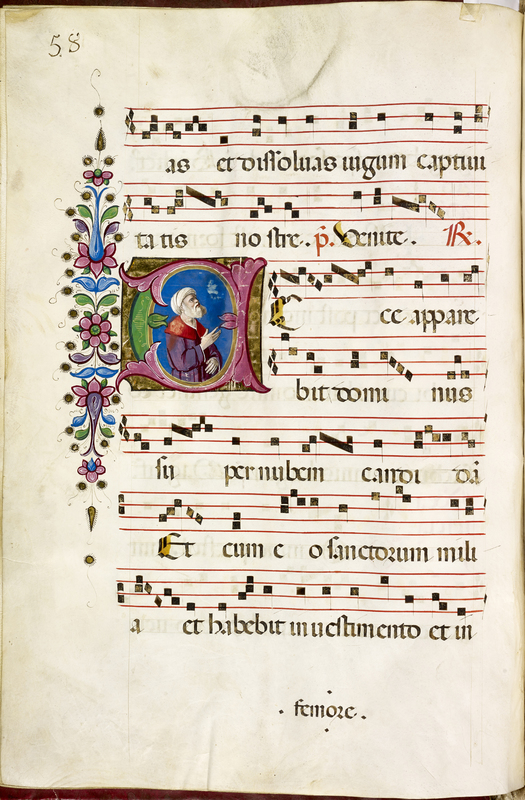 58
as et dissoluas iugum captiui
ta tis no stre. p̃. Venite. R.
E cce appare
bit domi nus
su per nubem candi dã
Et cum e o sanctorum mili
a et habebit in uestimento et in
. femore .